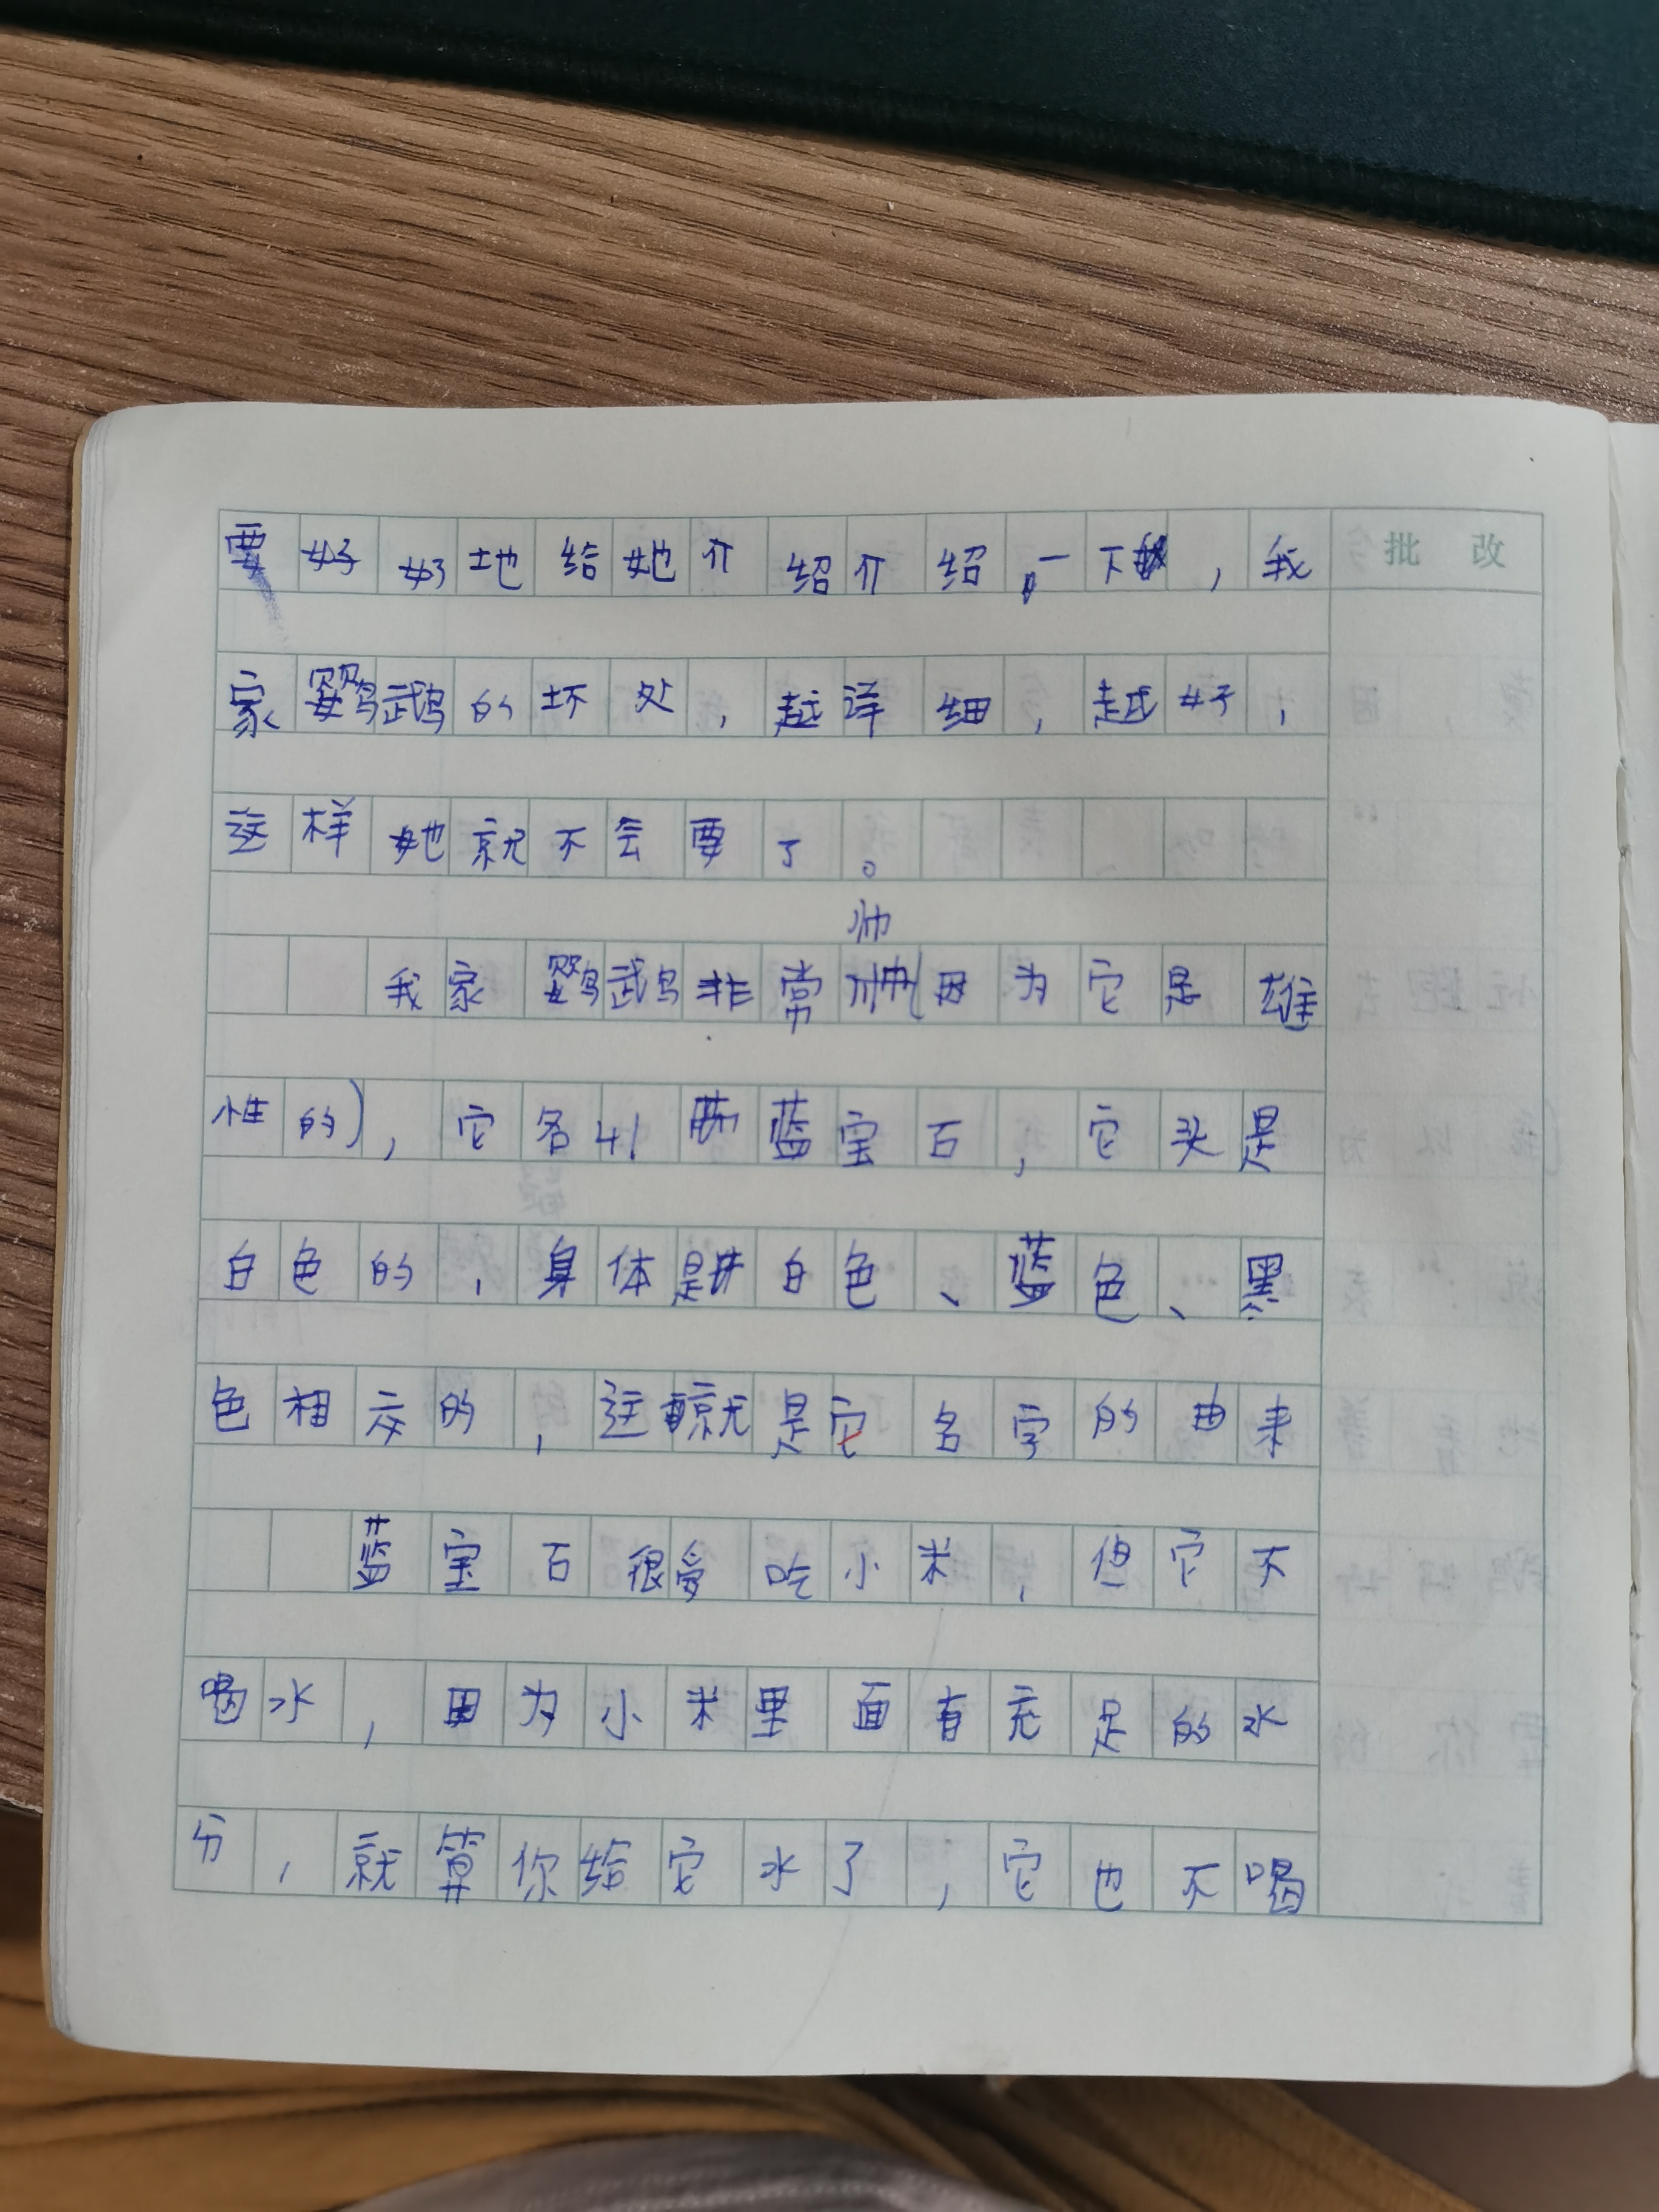 要好好地给她介绍介绍一下，我
批 改
家鹦鹉的坏处，越详细，越好，
这样她就不会要了。
帅
我家鹦鹉非常(因为它是雄
性的)，它名叫蓝宝石，它头是
白色的，身体是白色、蓝色、黑
色相交的，这就是它名字的由来
蓝宝石很爱吃小米，但它不
喝水，因为小米里面有充足的水
分，就算你给它水了，它也不喝